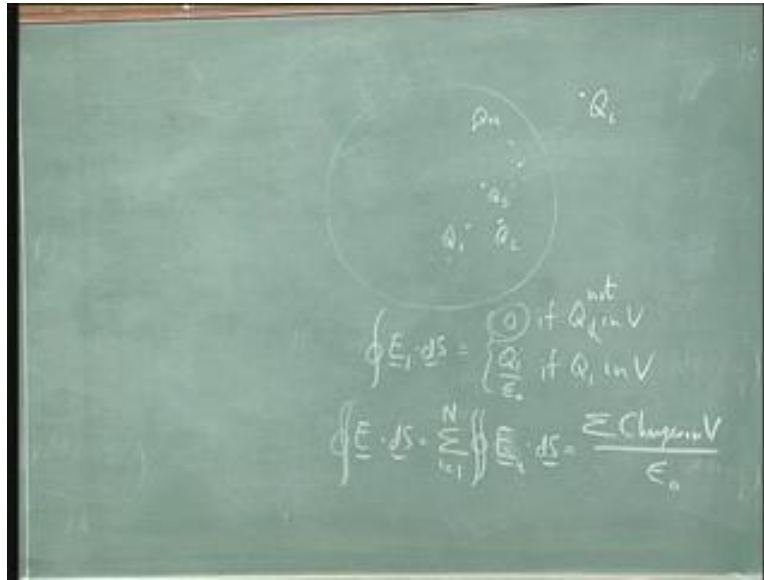 Q₆
Qₙ
Q₃
Q₁ Q₂
∮ E₁ · dS = { 0 if Q₁ not in V
Q₁/ε₀ if Q₁ in V
∮ E · dS = Σ_{i=1}^{N} ∮ E_i · dS = Σ Charges in V / ε₀